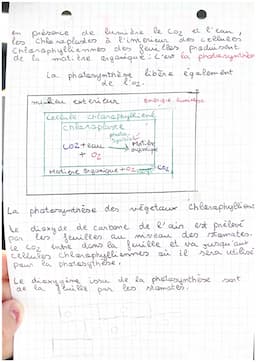 en présence de lumière le CO2 et l'eau,
les chloroplastes à l'intérieur des cellules
chlorophylliennes des feuilles produisent
de la matière organique : c'est la photosynthèse
La photosynthèse libère également
de l'O2.
milieu extérieur
énergie lumineuse
cellule chlorophyllienne
chloroplaste
photo-
synthèse
CO2 + eau → Matière
organique
+ O2
Matière organique + O2
CO2
La photosynthèse des végétaux chlorophylliens
Le dioxyde de carbone de l'air est prélevé
par les feuilles au niveau des stomates.
Le CO2 entre dans la feuille et va jusqu'aux
cellules chlorophylliennes où il sera utilisé
pour la photosythèse.
Le dioxygène issu de la photosynthèse sort
de la feuille par les stomates.